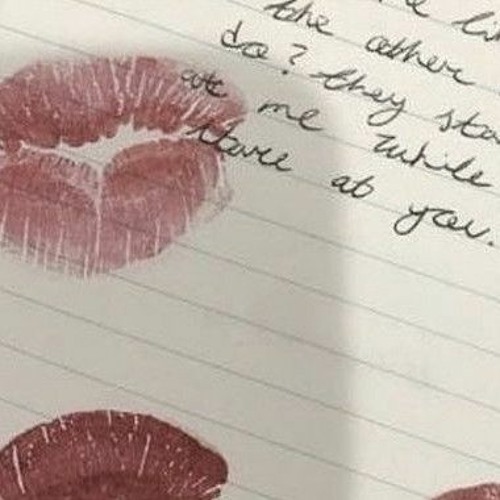 the other
do? they sta
at me while
stare at you.